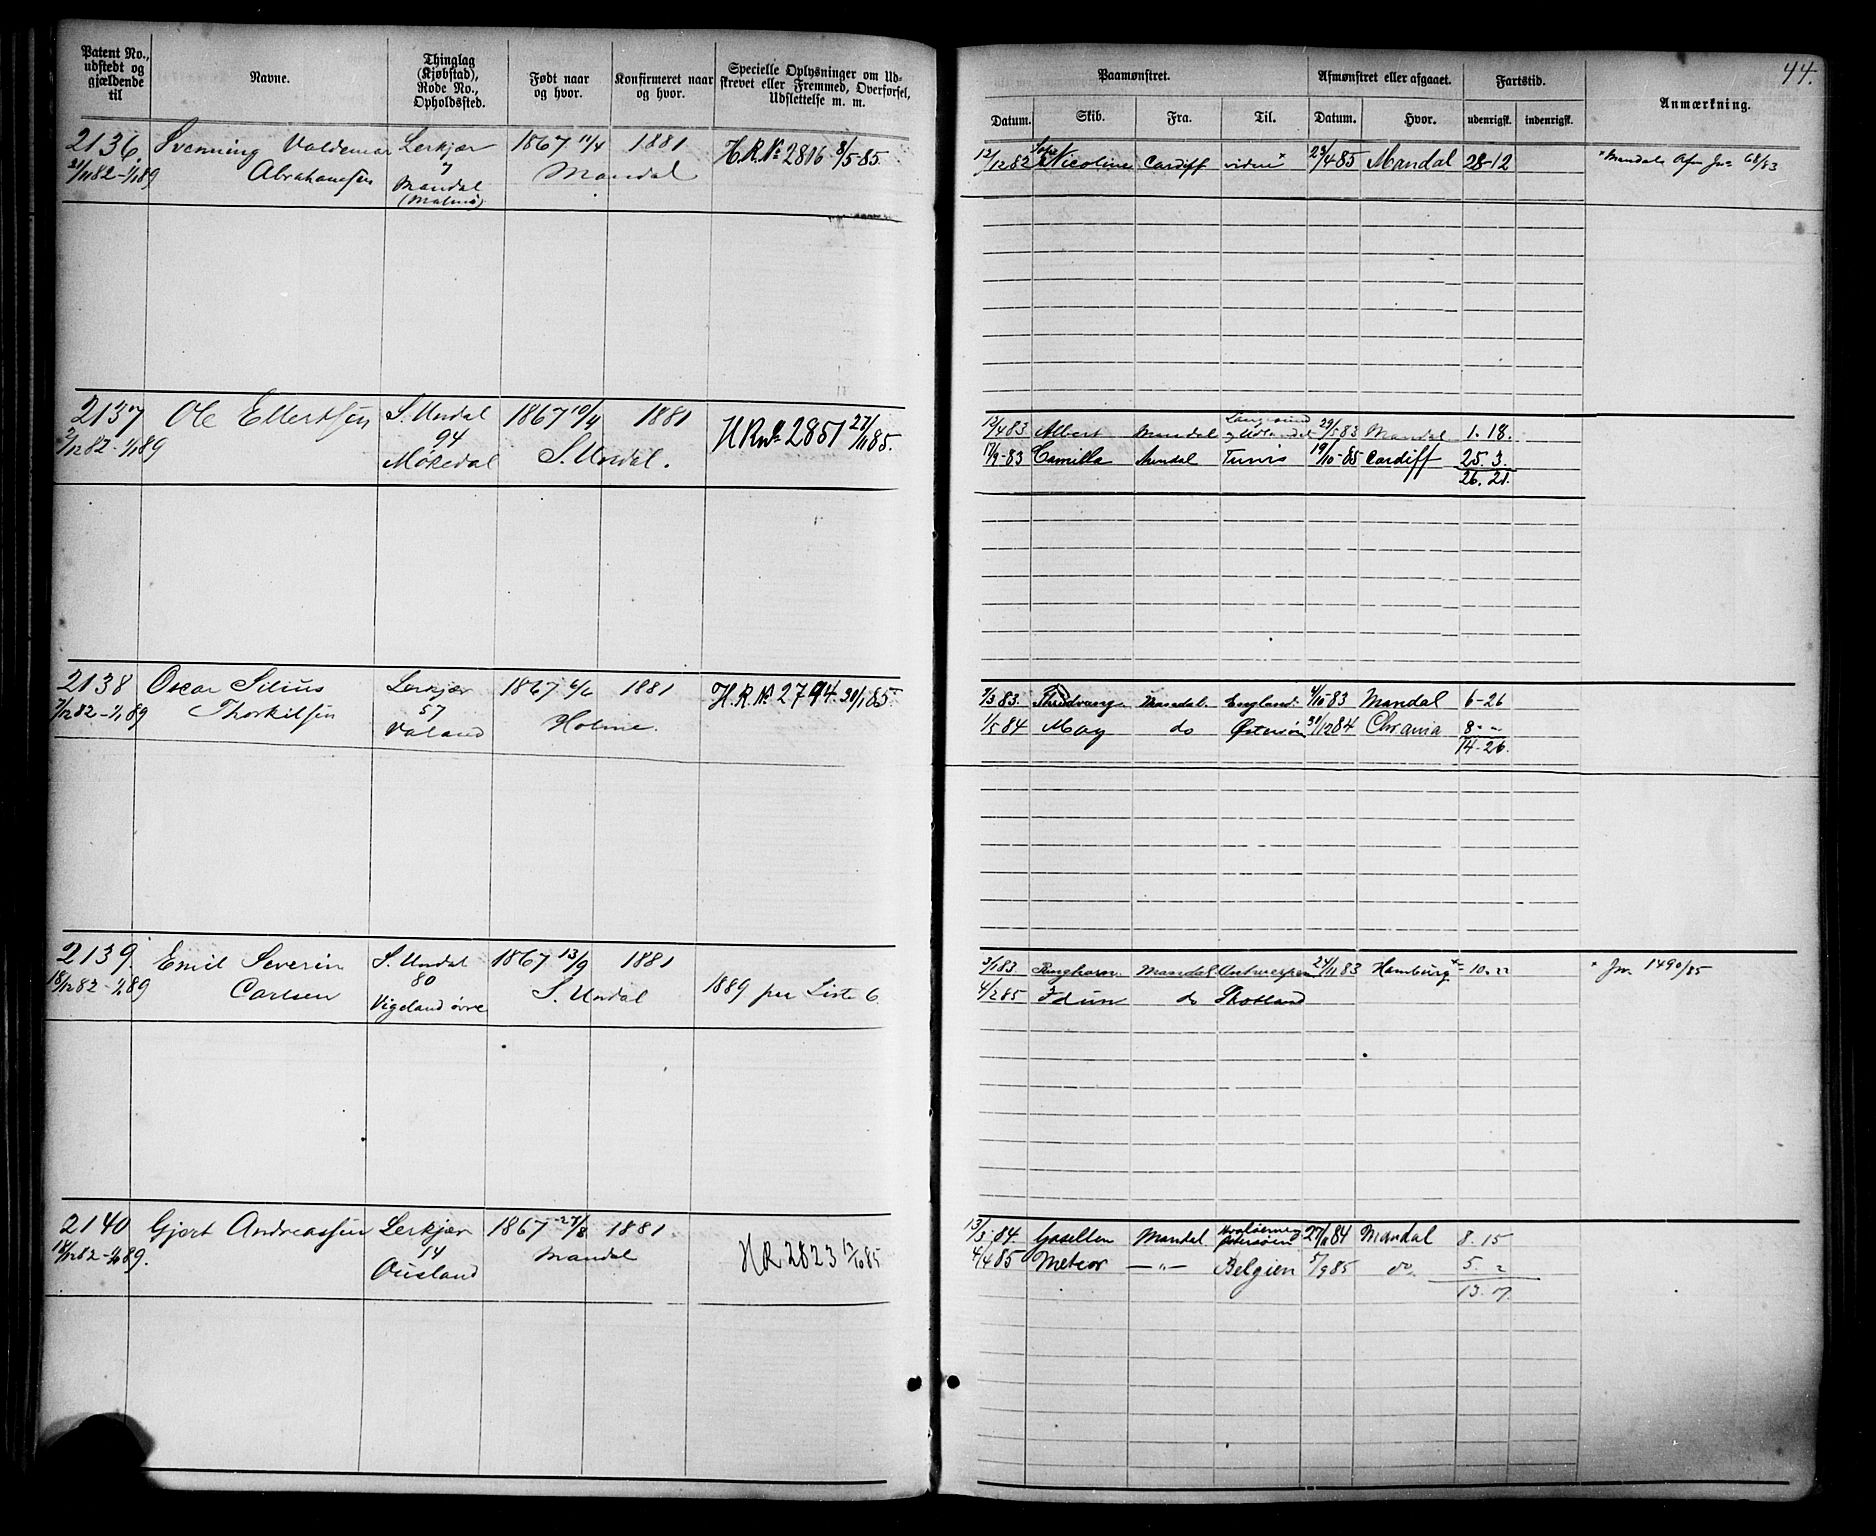 44.
Patent No., udstedt og gjældende til
Navne.
Thinglag (Kjøbstad), Rode No., Opholdssted.
Født naar og hvor.
Konfirmeret naar og hvor.
Specielle Oplysninger om Udskrevet eller Fremmed, Overførsel, Udslettelse m. m.
Paamønstret.
Afmønstret eller afgaaet.
Fartstid.
Anmærkning.
Datum. Skib. Fra. Til. Datum. Hvor. udenrigsk. indenrigsk.
2136. Svenning Valdemar Lerkjær 1867 11/4 1881 H.R.No 2816 8/5-85
21/11 82-1/1 89 Abrahamsen 7 Mandal
Mandal
(Malmø)
12/12 82 Nicoline Cardiff videre* 23/4-85 Mandal 28-12 * Mandals Afm Jno 68/83
2137 Ole Ellertsen S. Undal 1867 10/4 1881 H R No 2851 27/11 85.
2/12 82-1/1 89 94 S. Undal.
Møkedal
12/4 83 Albert Mandal Langesund og Udlandet 29/5 83 Mandal 1. 18.
17/9-83 Camilla Arendal Tunis 19/10-85 Cardiff 25. 3.
26. 21.
2138 Oscar Silius Lerkjær 1867 6/6 1881 H.R.No 2794 20/1 85.
7/12 82-1/1 89 Thorkilsen 57 Holme.
Valand
9/3 83. Thrudvang Mandal. England. 4/10-83 Mandal 6-26
1/5 84 May do Østersøn 31/12 84 Chrania 8 - "
14-26.
2139. Emil Severin S. Undal 1867 13/9 1881
18/12 82-1/1 89 Carlsen 80 S. Undal 1889 per Liste 6.
Vigeland øvre
3/1 83. Ringhorn Mandal Antwerpen 24/11 83 Hamburg * 10. 22 * Jno 1490/85
4/2 85 Idun do Skotland
2140 Gjert Andreassen Lerkjær 1867 27/8 1881
18/12 82-1/1 89. 14 Mandal H R 2823 12/10 85
Ousland
13/3 84. Gasellen Mandal Østersøen 27/11 84 Mandal 8. 15
4/4 85 Meteor —"— Belgien 5/9 85 do 5. 2
13. 17.